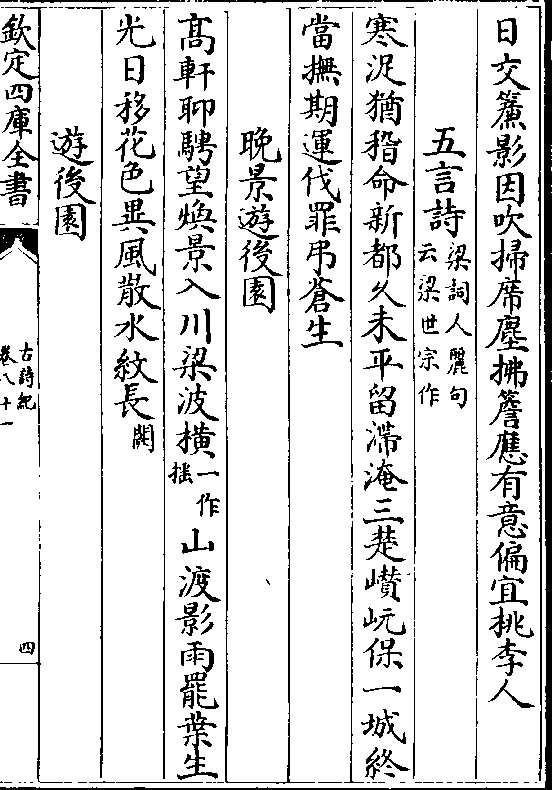 日交簾影因吹掃席塵拂簷應有意偏宜桃李人
五言詩梁詞人麗句
云梁世宗作
寒浞猶稽命新都久未平留滯淹三楚巑岏保一城終
當撫期運伐罪弔蒼生
晩景遊後園
髙軒聊騁望煥景入川梁波橫一作
搖山渡影雨罷葉生
光日移花色異風散水紋長闕
遊後園
欽定四庫全書
古詩紀
卷八十一
四